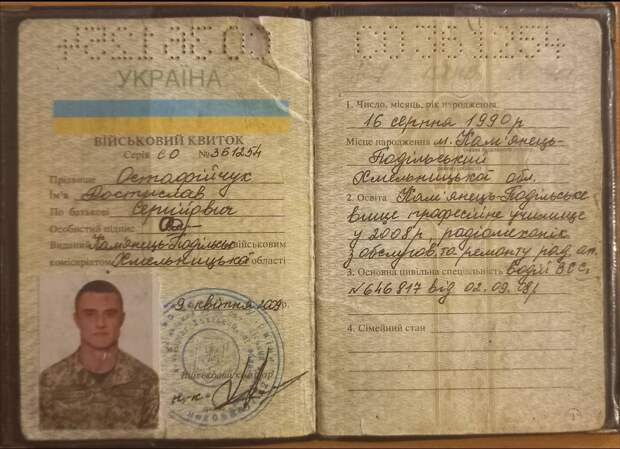 УКРАЇНА
ВІЙСЬКОВИЙ КВИТОК
Серія СО № 361254
Прізвище Остафійчук
Ім'я Ростислав
По батькові Сергійович
Особистий підпис
Виданий Кам'янець-Подільським військовим
комісаріатом Хмельницька області
9 квітня 2009 р.
Військовий комісар
1. Число, місяць, рік народження
16 серпня 1990 р
Місце народження м. Кам'янець-
Подільський
Хмельницької обл.
2. Освіта Кам'янець-Подільське
вище професійне училище
у 2008 р радіомеханік
з обслугов. та ремонту рад. ап.
3. Основна цивільна спеціальність Водій
№ 646817 від 02.09.08 р
4. Сімейний стан